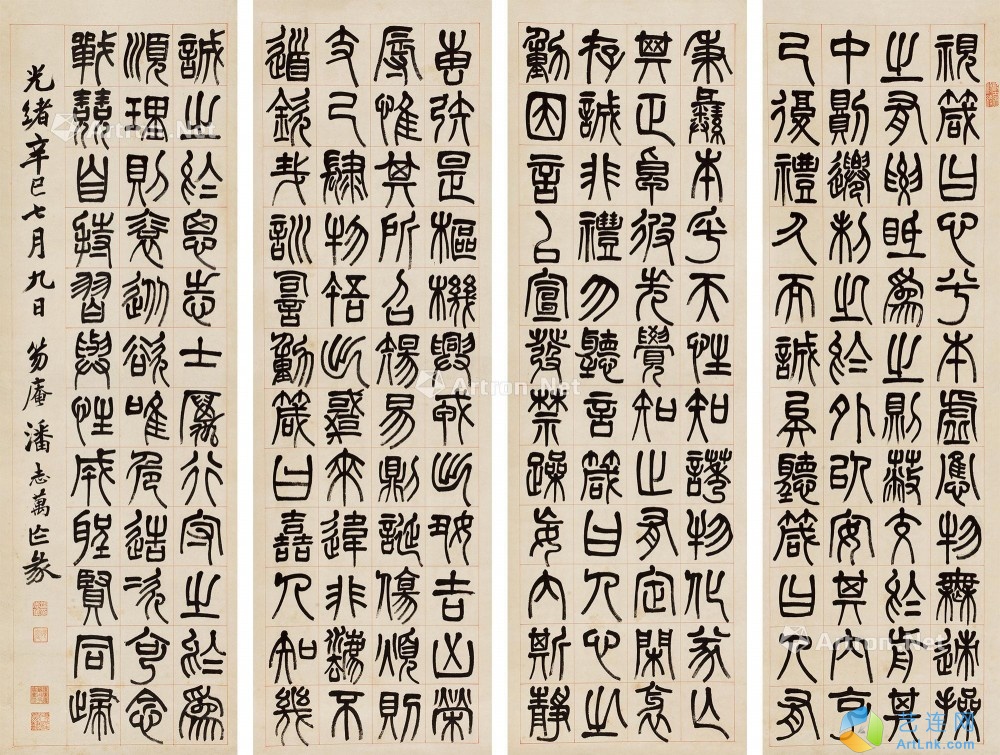 視箴曰心兮本虛應物無迹操
之有要眡為之則蔽交於前其
中則遷制之於外以安其內克
己復禮久而誠矣聽箴曰人有
秉彝本乎天性知誘物化遂亡
其正卓彼先覺知止有定閑邪
存誠非禮勿聽言箴曰人心之
動因言以宣發禁躁妄內斯靜
專矧是樞機興戎出好吉凶榮
辱惟其所召傷易則誕傷煩則
支己肆物忤出悖來違非灋不
道欽哉訓言動箴曰哲人知幾
誠之於思志士厲行守之於為
順理則裕從欲唯危造次克念
戰兢自持習與性成聖賢同歸
光緒辛巳七月九日 笏庵潘志萬作篆
Artron.Net
Artron.Net
Artron.Net
Artron.Net
艺连网
ArtLnk.com